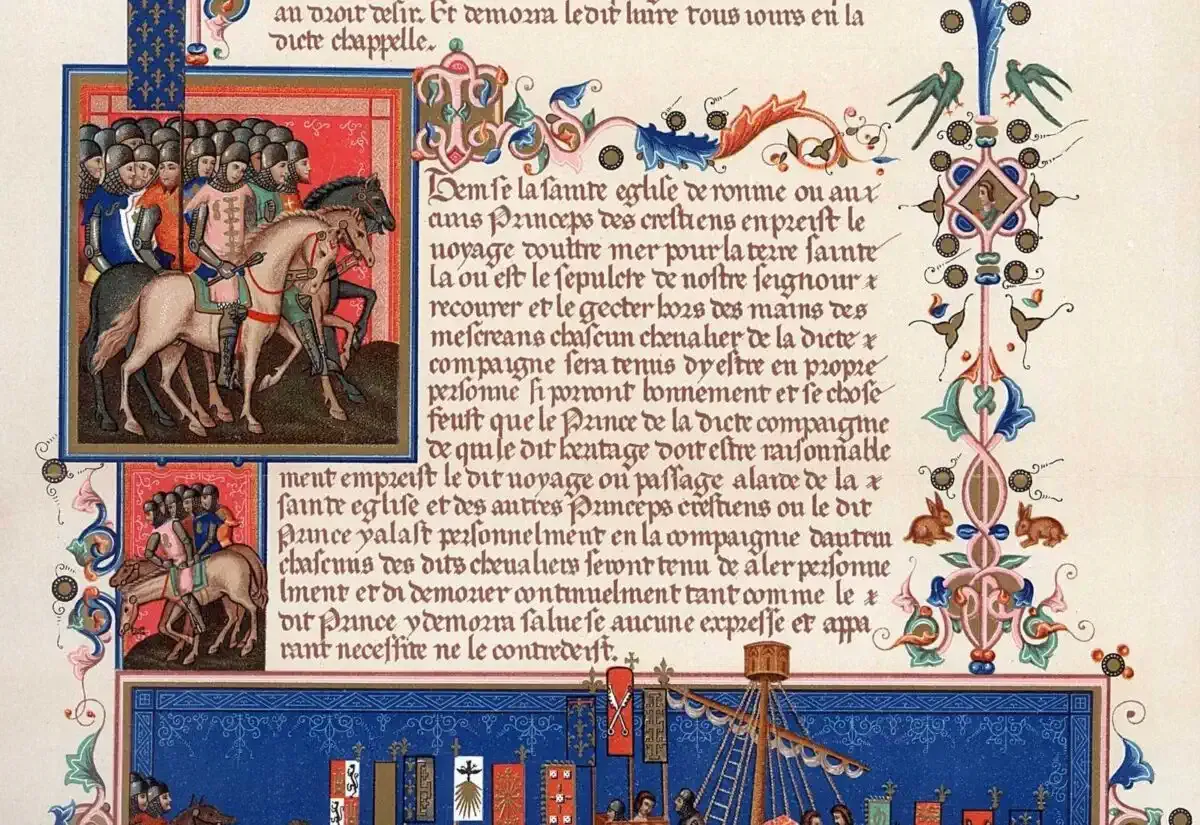 au droit desir. Et demorra ledit livre tous iours en la
dicte chappelle.
Item se la sainte eglise de romme ou aux
cuns Princeps des crestiens enpreist le
uoyage doultre mer pour la terre sainte
la ou est le sepulcre de nostre seignour x
recourer et le gecter hors des mains des
mescreans chascun chevalier de la dicte x
compaigne sera tenus dyestre en propre
personne si porront bonnement et se chose
feust que le Prince de la dicte compaigme
de qui le dit heritage doit estre raisonnable
ment empreist le dit uoyage ou passage alaide de la x
sainte eglise et des autres Princeps crestiens ou le dit
Prince yalast personnelment en la compaignie dautrui
chascuns des dits chevaliers seront tenu de aler personne
lment et di demorer continuelment tant comme le x
dit Prince ydemorra salue se aucune expresse et appa
rant necessite ne le contredeist.